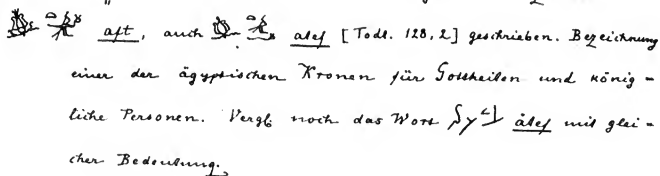 aft, auch atef [Todt. 128, 2] geschrieben. Bezeichnung
einer der ägyptischen Kronen für Gottheiten und könig-
liche Personen. Vergl. noch das Wort àtef mit glei-
cher Bedeutung.